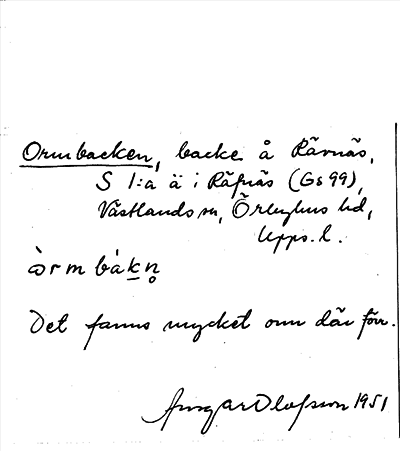 Ormbacken, backe å Rävnäs,
S 1:a ä i Räfnäs (Gs 99),
Västlands sn, Örbyhus hd,
Upps. l.
òrmbàkn̥
Det fanns mycket orm där förr.
Ansgar Olofsson 1951